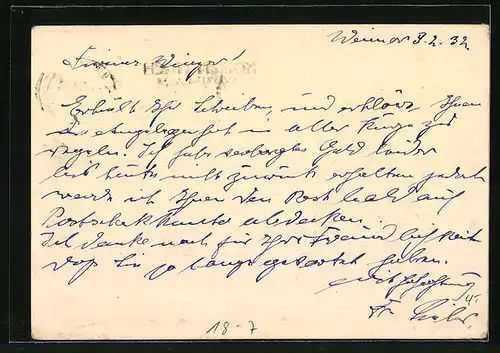 Weimar 9.2.32
Firma Winger!
Erhielt Ihr Schreiben, und erkläre Ihnen
die Angelegenheit in aller Kürze zu
regeln. Ich habe verborgtes Geld leider
bis heute nicht zurück erhalten jedoch
werde ich Ihnen den Rest bald auf
Postscheckkonto abdecken.
Ich danke noch für Ihre Freundlichkeit
daß Sie so lange gewartet haben.
Mit Hochachtung
Fr.
18-7